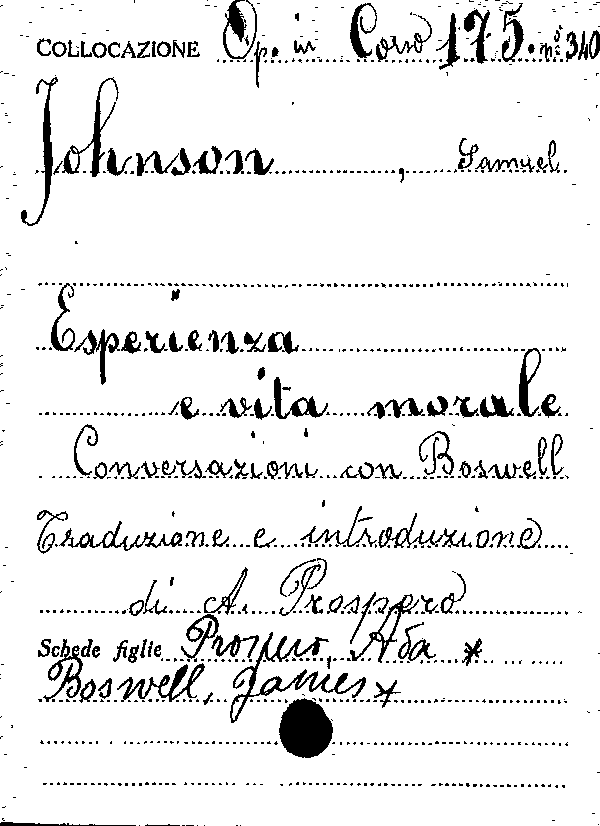 COLLOCAZIONE Op. in Corso 175. nº 340
Johnson, Samuel
Esperienza
e vita morale
Conversazioni con Boswell
Traduzione e introduzione
di A. Prospero
Schede figlie Prospero, Ada *
Boswell, James *